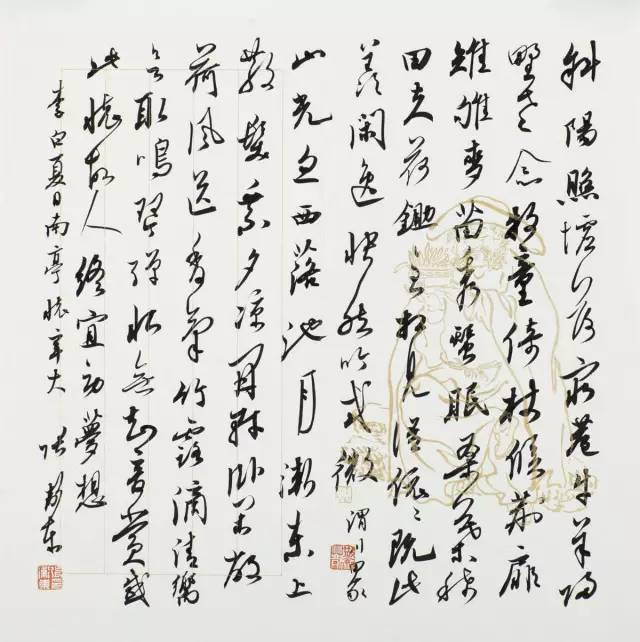 斜陽照墟落窮巷牛羊歸
野老念牧童倚杖候荆扉
雉雊麥苗秀蠶眠桑葉稀
田夫荷鋤立相見語依〻即此
羨閑逸悵然吟式微 渭川田家
山光忽西落池月漸東上
散髮乘夕涼開軒卧閑敞
荷風送香氣竹露滴清響
欲取鳴琴彈恨無知音賞感
此懷故人終宵勞夢想
李白夏日南亭懷辛大